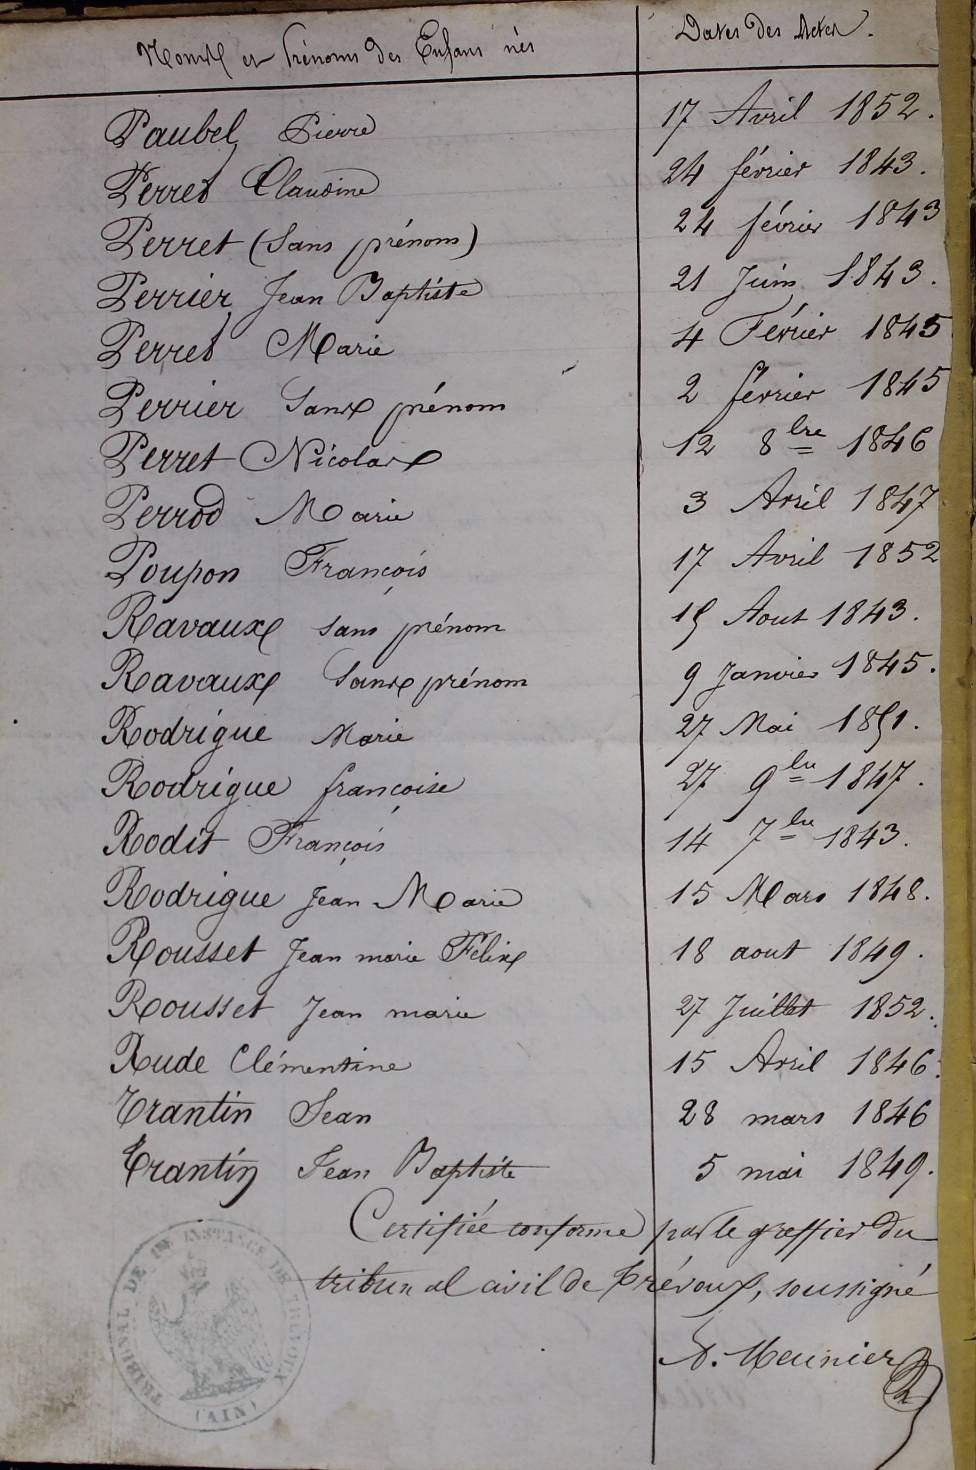 Noms et Prénoms des Enfans nés Dates des Actes.
Paubel Pierre 17 Avril 1852.
Perret Claudine 24 février 1843.
Perret (Sans prénom) 24 février 1843
Perrier Jean Baptiste 21 Juin 1843.
Perret Marie 4 Février 1845
Perrier Sans prénom 2 février 1845
Perret Nicolas 12 8bre 1846
Perrod Marie 3 Avril 1847
Poupon François 17 Avril 1852
Ravaux sans prénom 15 Aout 1843.
Ravaux Sans prénom 9 Janvier 1845.
Rodrigue Marie 27 Mai 1851.
Rodrigue françoise 27 9bre 1847.
Rodit François 14 7bre 1843.
Rodrigue Jean Marie 15 Mars 1848.
Rousset Jean marie Félix 18 aout 1849.
Rousset Jean marie 27 Juillet 1852.
Rude Clémentine 15 Avril 1846.
Trantin Jean 28 mars 1846
Trantin Jean Baptiste 5 mai 1849.
Certifiée conforme par le greffier du
tribunal civil de Trévoux, soussigné
Meunier
TRIBUNAL DE INSTANCE DE TREVOUX
(AIN)